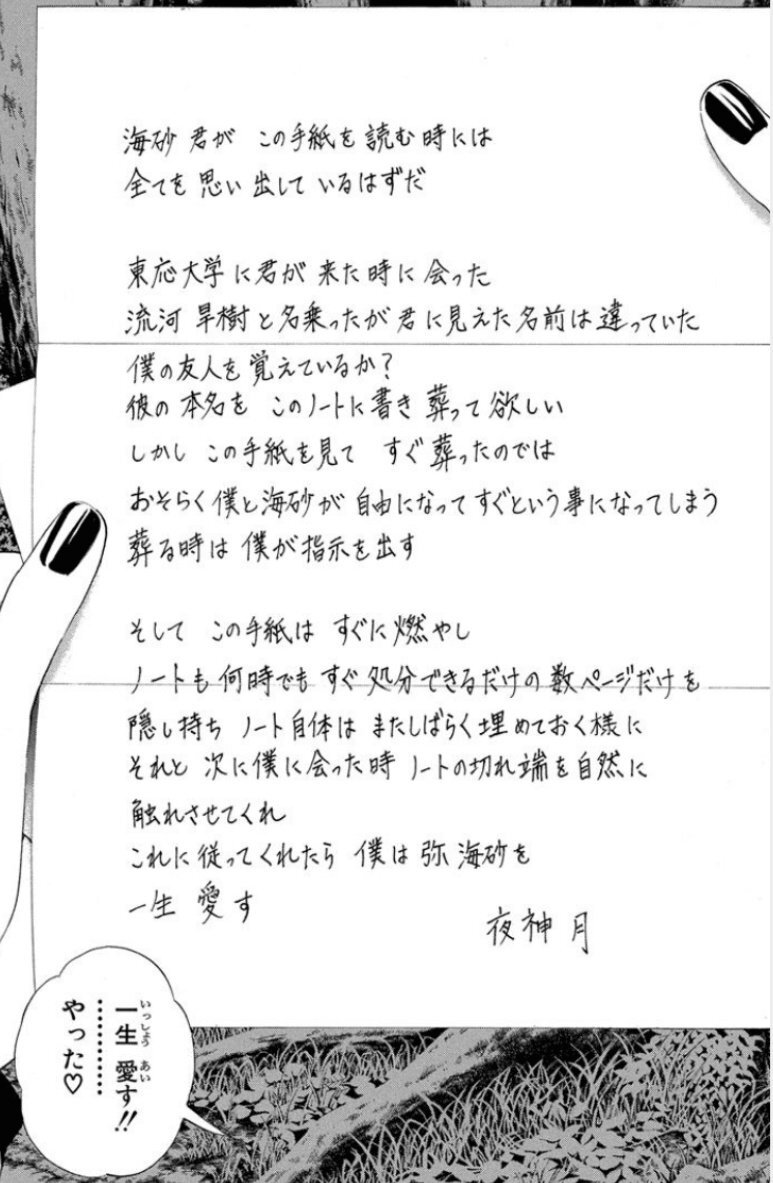 海砂 君が この手紙を読む時には
全てを思い出して いるはずだ
東応大学に君が 来た時に会った
流河 旱樹と名乗ったが君に見えた名前は違っていた
僕の友人を覚えているか？
彼の本名を このノートに書き 葬って欲しい
しかし この手紙を見て すぐ葬ったのでは
おそらく僕と海砂が 自由になってすぐという事になってしまう
葬る時は 僕が指示を出す
そして この手紙は すぐに燃やし
ノートも何時でも すぐ処分できるだけの数ページだけを
隠し持ち ノート自体は またしばらく埋めておく様に
それと 次に僕に会った時 ノートの切れ端を自然に
触れさせてくれ
これに従ってくれたら 僕は 弥 海砂を
一生 愛す
夜神 月
一生愛す!!
…………
やった♡